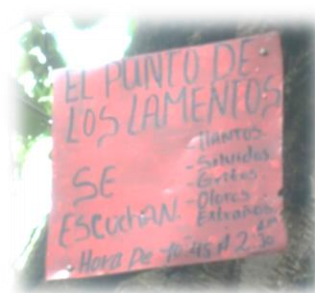 EL PUNTO DE
LOS LAMENTOS
SE
EscuchAN.
LLANTOS
- Silvidos
- Gritos
- Olores
Extraños
Hora De 10:45 A 2:30 AM